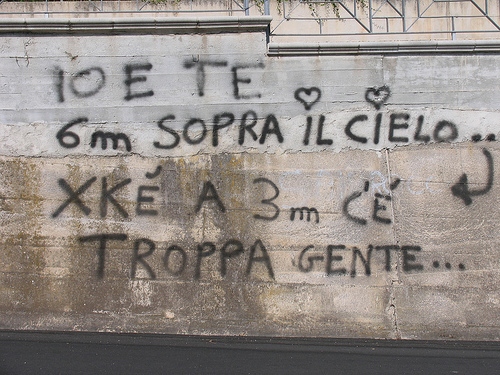 IO E TE
6m SOPRA IL CIELO..
XKÉ A 3m C'É
TROPPA GENTE...